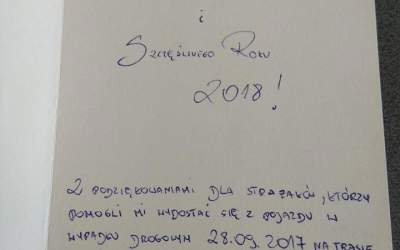 i
Szczęśliwego Roku
2018!
Z podziękowaniami dla strażaków, którzy
pomogli mi wydostać się z pojazdu w
wypadku drogowym 28.09.2017 na trasie